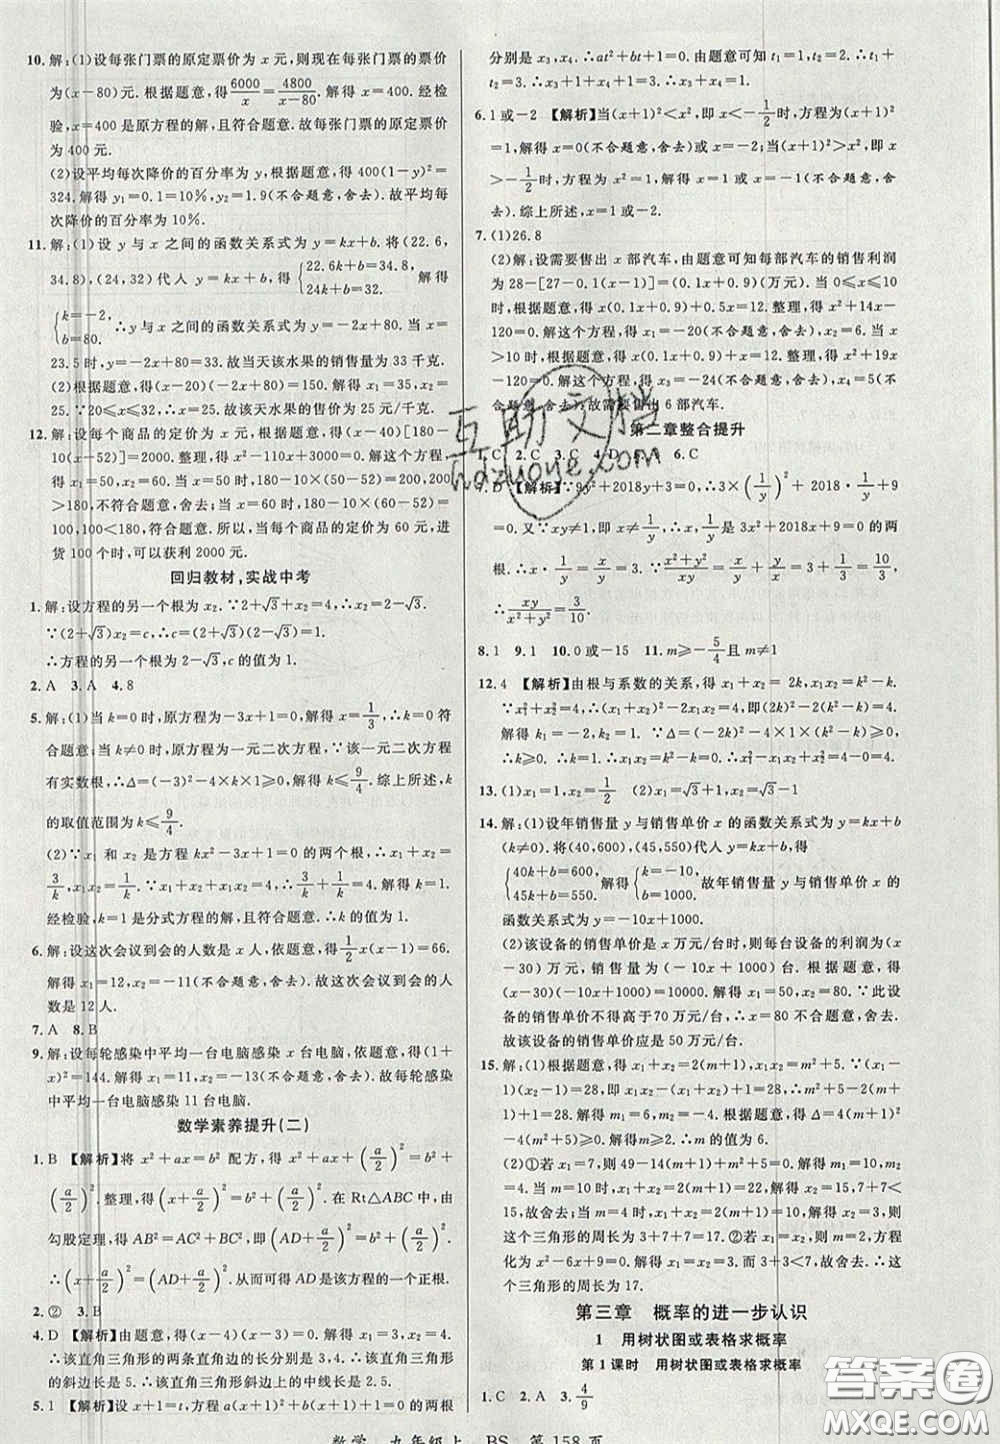 10. 解:(1)设每张门票的原定票价为 x 元,则现在每张门票的票价
为(x-80)元. 根据题意,得6000/x=4800/(x-80). 解得 x=400. 经检
验,x=400 是原方程的解,且符合题意. 故每张门票的原定票价
为 400 元.
(2)设平均每次降价的百分率为 y,根据题意,得 400(1-y)²=
324. 解得 y₁=0.1=10%,y₂=1.9(不合题意,舍去). 故平均
每次降价的百分率为 10%.
11. 解:(1)设 y 与 x 之间的函数关系式为 y=kx+b. 将(22.6,
34.8),(24,32)代人 y=kx+b,得{22.6k+b=34.8, 24k+b=32. 解得
{k=-2, b=80. ∴y 与 x 之间的函数关系式为 y=-2x+80. 当 x=
23.5 时,y=-2x+80=33. 故当天该水果的销售量为 33 千克.
(2)根据题意,得(x-20)(-2x+80)=150. 解得 x₁=35,x₂=
25. ∵20≤x≤32,∴x=25. 故该天水果的售价为 25 元/千克.
12. 解:设每个商品的定价为 x 元,根据题意,得(x-40)[180-
10(x-52)]=2000. 整理,得 x²-110x+3000=0. 解得
x₁=50,x₂=60. 当 x=50 时,180-10(x-52)=180-10(50-
52)=200>180,不符合题意,舍去;当 x=60 时,180-10(60-52)=
100,100<180,符合题意. 所以,当每个商品的定价为 60 元,进
货 100 个时,可以获利 2000 元.
回归教材,实战中考
1. 解:设方程的另一个根为 x₂. ∵2+√3+x₂=4,∴x₂=2-√3.
∵(2+√3)x₂=c,∴c=(2+√3)(2-√3)=1.
∴方程的另一个根为 2-√3,c 的值为 1.
2. A 3. A 4. 8
5. 解:(1)当 k=0 时,原方程为-3x+1=0. 解得 x=1/3,∴k=0 符
合题意;当 k≠0 时,原方程为一元二次方程,∵该一元二次方程
有实数根,∴Δ=(-3)²-4×k×1≥0,解得 k≤9/4. 综上所述,k
的取值范围为 k≤9/4.
(2)∵x₁ 和 x₂ 是方程 kx²-3x+1=0 的两个根,∴x₁+x₂=
3/k,x₁x₂=1/k.
经检验,k=1 是分式方程的解,且符合题意. ∴k 的值为 1.
6. 解:设这次会议到会的人数是 x 人,依题意,得1/2x(x-1)=66.
解得 x₁=12,x₂=-11(不合题意,舍去). 故这次会议到会的人
数是 12 人.
7. A 8. B
9. 解:设每轮感染中平均一台电脑感染 x 台电脑,依题意,得(1+
x)²=144. 解得 x₁=11,x₂=-13(不合题意,舍去). 故每轮感染
中平均一台电脑感染 11 台电脑.
数学素养提升(二)
1. B 【解析】将 x²+ax=b² 配方,得 x²+ax+(a/2)²=b²+
(a/2)². 整理,得(x+a/2)²=b²+(a/2)². 在 Rt△ABC 中,由
勾股定理,得 AB²=AC²+BC²,即(AD+a/2)²=b²+(a/2)².
∴(x+a/2)²=(AD+a/2)². 从而可得 AD 是该方程的一个正根.
2. ② 3. B
4. D 【解析】根据题意,得(x-4)(x-3)=0. 解得 x₁=4,x₂=3.
∴该直角三角形的两条直角边的长分别是 3,4. ∴该直角三角形
的斜边长是 5. ∴该直角三角形斜边上的中线长是 2.5.
5. 1 【解析】设 x+1=t,方程 a(x+1)²+b(x+1)+1=0 的两根
分别是 x₃,x₄. ∴at²+bt+1=0. 由题意可知,t₁=1,
t₂=3. ∴x₃+1+x₄+1=3. ∴x₃+x₄=1.
6. 1 或-2 【解析】当(x+1)²<x²,即 x<-1/2时,方程为 x²
=1,解得 x=0(不合题意,舍去);当(x+1)²>x²,即
x>-1/2时,方程为 x²=1. 解得 x₁=1,x₂=-1(不合题意,
舍去). 综上所述,x=1 或-2.
7. (1)26.8
(2)解:设需要售出 x 部汽车,由题意可知每部汽车的销售利润
为 28-[27-0.1(x-1)]=(0.1x+0.9)(万元). 当 0≤x≤
10时,根据题意,得 x(0.1x+0.9)+0.5x=12. 整理,得 x²+14x-
120=0. 解这个方程,得 x₁=-20(不合题意,舍去),x₂=6. 当 x
>10 时,根据题意,得 x(0.1x+0.9)+x=12. 整理,得 x²+19x
-120=0. 解这个方程,得 x₁=-24(不合题意,舍去),x₂=5(不
合题意,舍去). 故需要售出 6 部汽车.
第二章整合提升
1. C 2. C 3. C 4. D 6. C
7. D 【解析】∵9y²+2018y+3=0,∴3×(1/y)²+2018·1/y+9
=0. 又∵xy≠1,∴x≠1/y,∴x,1/y是 3x²+2018x+9=0 的两
根.
∴xy/(x²+y²)=3/10.
8. 1 9. 1 10. 0 或-15 11. m≥-5/4且 m≠1
12. 4
13. (1)x₁=x₂=1/2 (2)x₁=x₂=1
14. 解:(1)设年销售量 y 与销售单价 x 的函数关系式为 y=kx+b
(k≠0). 将(40,600),(45,550)代人 y=kx+b,得
{40k+b=600, 45k+b=550. 解得{k=-10, b=1000. 故年销售量 y 与销售单价 x 的
函数关系式为 y=-10x+1000.
(2)该设备的销售单价是 x 万元/台时,则每台设备的利润为(x
-30)万元,销售量为(-10x+1000)台. 根据题意,得(x-30)
(-10x+1000)=10000. 解得 x₁=50,x₂=80. ∵此设
备的销售单价不得高于70 万元/台,∴x=80 不合题意,舍去.
故该设备的销售单价应是 50 万元/台.
15. 解:(1)根据题意,得 x₁+x₂=2(m+1),x₁x₂=m²+5. ∵(x₁-
1)(x₂-1)=28,即 x₁x₂-(x₁+x₂)+1=28,∴m²+5-2(m+1)
+1=28. 解得 m₁=-4,m₂=6. 根据题意,得 Δ=4(m+1)²-
4(m²+5)≥0. 解得 m≥2. ∴m 的值为 6.
(2)①若 x₁=7,则 49-14(m+1)+m²+5=0. 解得 m₁=10,m₂=
4. 当 m=10 时,x₁+x₂=2(m+1)=22. 解得 x₂=15,7+7<
15,舍去;当 m=4 时,x₁+x₂=2(m+1)=10. 解得 x₂=3,则
这个三角形的周长为 3+7+7=17. ②若 x₁=x₂,则 m=2,方程
化为 x²-6x+9=0. 解得 x₁=x₂=3. 由于 3+3<7,故舍去. ∴这
个三角形的周长为 17.
第三章 概率的进一步认识
1 用树状图或表格求概率
第 1 课时 用树状图或表格求概率
1. C 2. A 3. 4/9
数学 九年级上 BS 第 158 页
互助文档
hdzuoye.com
答案圈
MXQE.COM